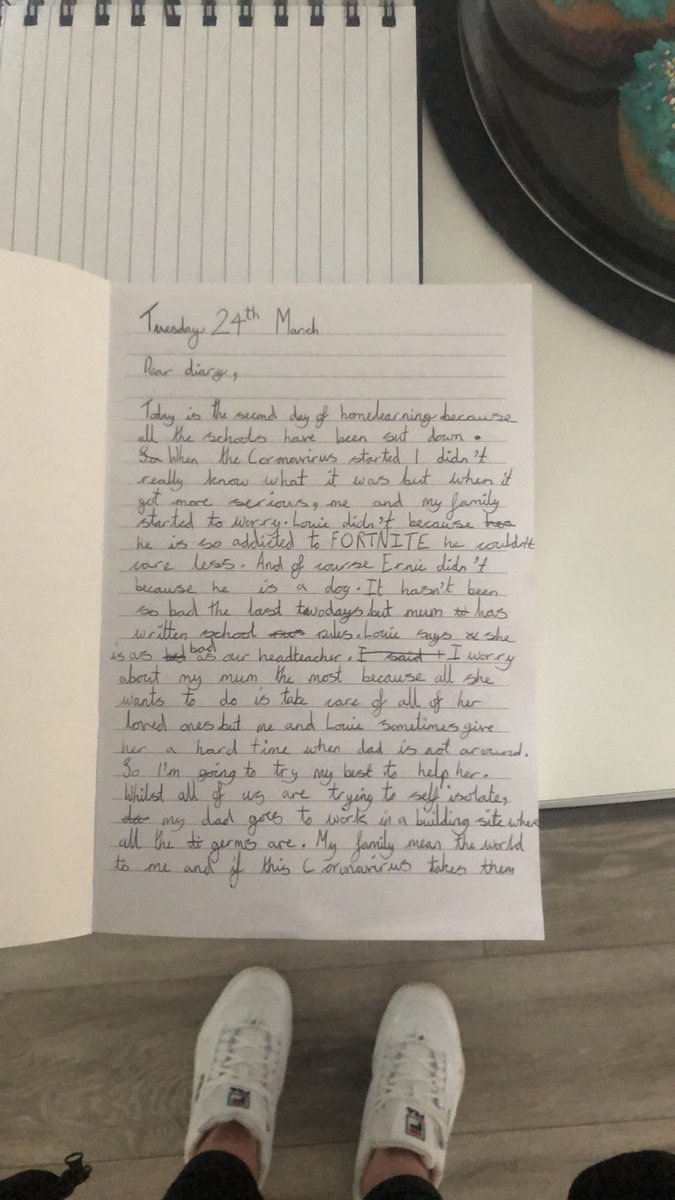 Tuesday 24th March
Dear diary,
Today is the second day of homelearning because
all the schools have been sut down.
So When the Cormavirus started I didn't
really know what it was but when it
got more serious, me and my family
started to worry. Louie didn't because has
he is so addicted to FORTNITE he couldn't
care less. And of course Ernie didn't
because he is a dog. It hasn't been
so bad the last twodays but mum has
written school rules. Louie says she
is as bad as our headteacher. I said I worry
about my mum the most because all she
wants to do is take care of all of her
loved ones but me and Louie sometimes give
her a hard time when dad is not around.
So I'm going to try my best to help her.
Whilst all of us are trying to self isolate,
my dad goes to work in a building site where
all the germs are. My family mean the world
to me and if this Coronavirus takes them